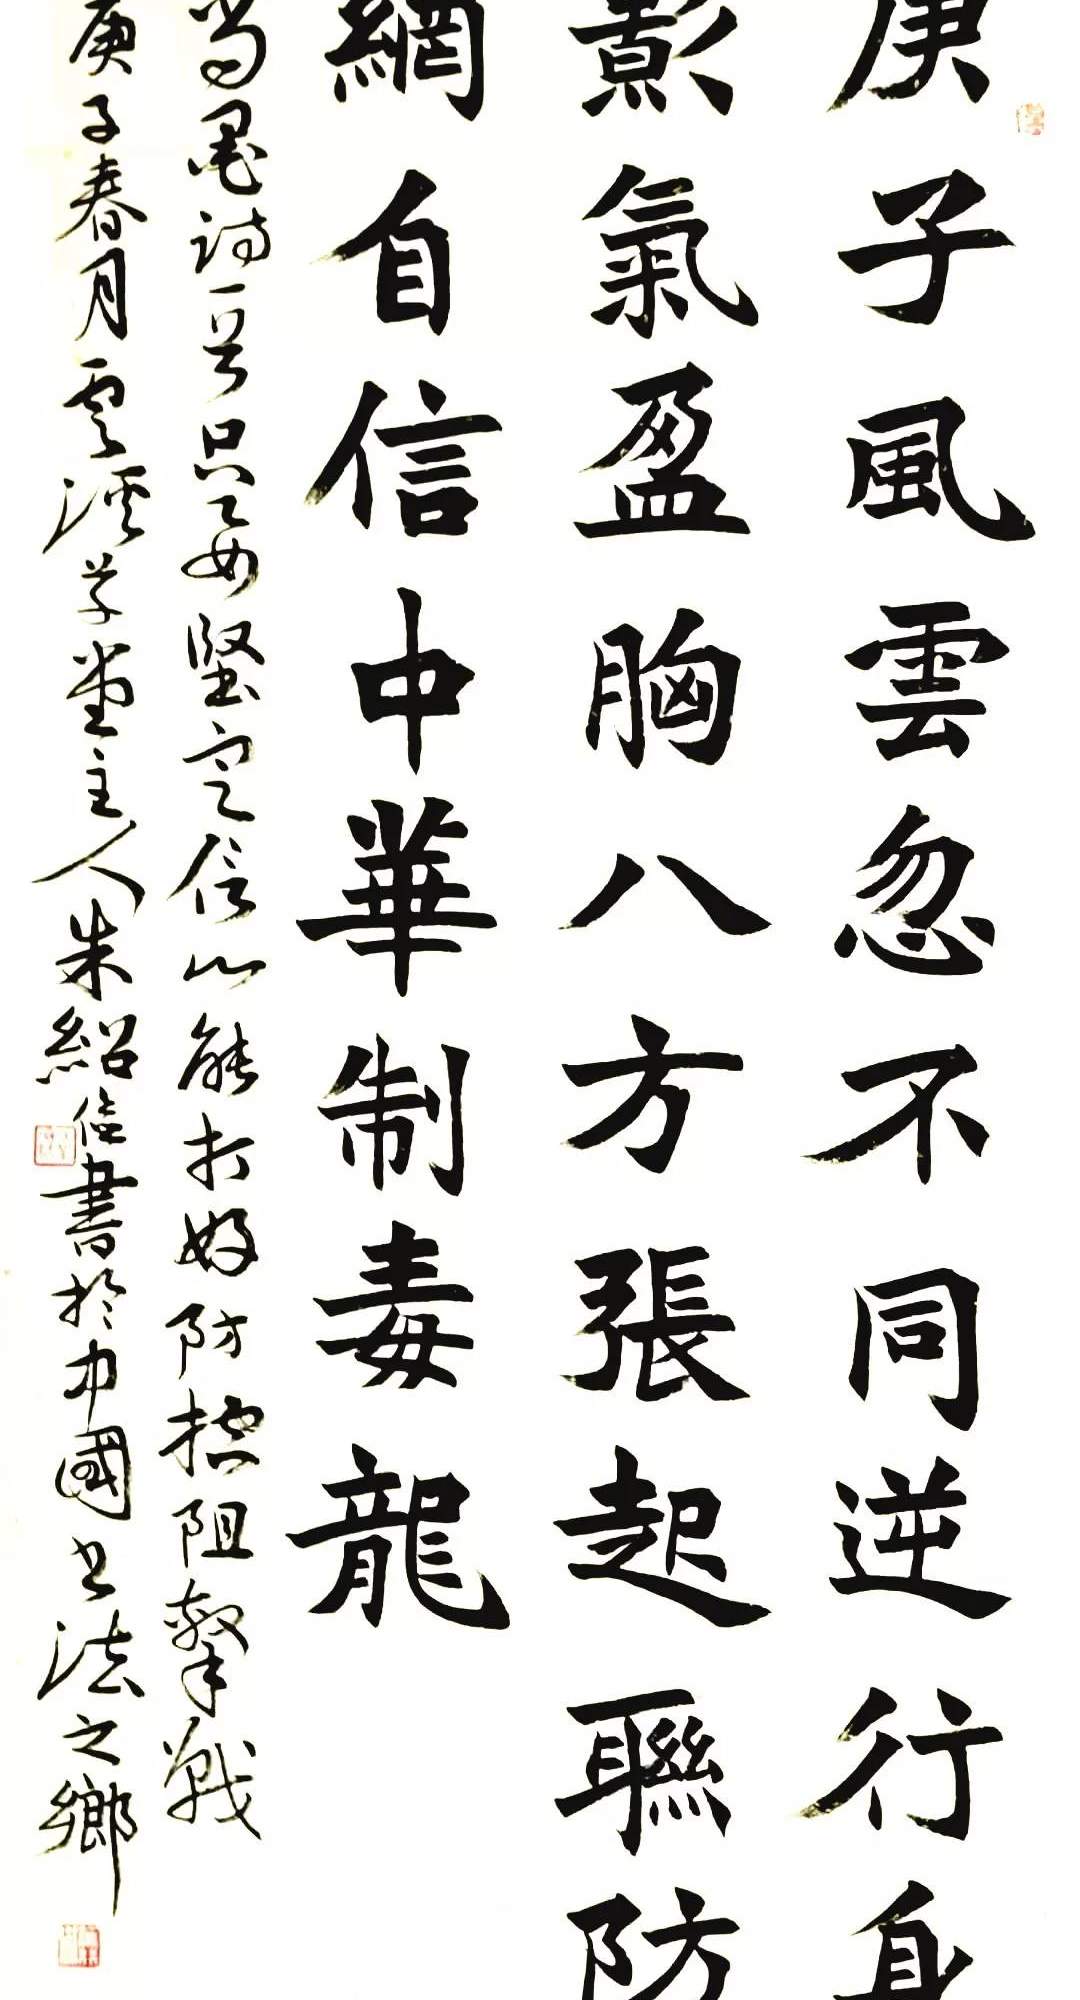 庚子風雲忽不同逆行身
影氣盈胸八方張起聯防
網自信中華制毒龍
尚墨詩一首只要堅定信心能打好防控阻擊戰
庚子春月雲溪草堂主人朱紹儉書於中國書法之鄉